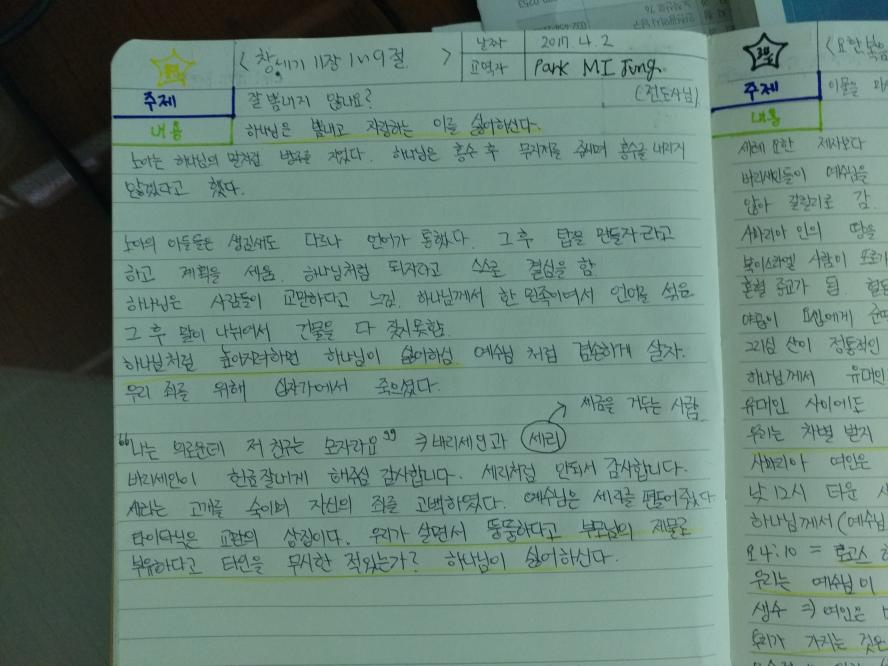 < 창세기 11장 1~9절 >
날짜 2017. 4. 2
교역자 Park MI Jung.
(전도사님)
주제 잘 뽐내지 않나요?
내용 하나님은 뽐내고 자랑하는 이를 싫어하신다.
노아는 하나님의 말처럼 방주를 지었다. 하나님은 홍수 후 무지개를 주시며 홍수를 내리지
않겠다고 했다.
노아의 아들들은 생김새도 다르나 언어가 통했다. 그 후 탑을 만들자라고
하고 계획을 세움. 하나님처럼 되자라고 스스로 결심을 함
하나님은 사람들이 교만하다고 느낌. 하나님께서 한 민족이어서 언어를 섞음
그 후 말이 나뉘어서 건물을 다 짓지못함.
하나님처럼 높아지려하면 하나님이 싫어하심 예수님 처럼 겸손하게 살자.
우리 죄를 위해 십자가에서 죽으셨다.
세금을 거두는 사람
"나는 의로운데 저 친구는 모자라요" ⇒ 바리세인과 세리
바리세인이 헌금잘내게 해주심 감사합니다. 세리처럼 안되서 감사합니다.
세리는 고개를 숙이며 자신의 죄를 고백하였다. 예수님은 세리를 편들어줬다
교만의 상징이다. 우리가 살면서 뚱뚱하다고 부모님의 재물로
부유하다고 타인을 무시한 적있는가? 하나님이 싫어하신다.
< 요한복음
주제
내용
세례 요한 제사보다
바리세인들이 예수님을
않아 갈릴리로 감.
사마리아 인의 땅을
북이스라엘 사람이 포로가
혼혈 종교가 됨.
그리심 산이 정통적인
하나님께서 유대인
유대인 사이에도
우리는 차별 받지
사마리아 여인은
낮 12시 타운
하나님께서 (예수님
요4:10 = 로고스
우리는 예수님이
생수 ⇒ 여인은
우리가 가지는 것은